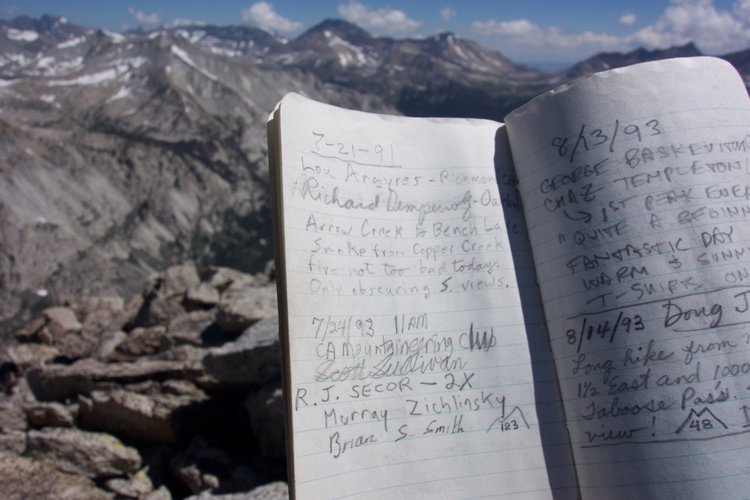 7-21-91
Lou Argyros - Richmond
Richard Dempewolf - Oa
Arrow Creek to Bench Lake
Smoke from Copper Creek
fire not too bad today.
Only obscuring S. views.
7/24/93 11AM
CA Mountaineering Club
Scott Sullivan
R.J. SECOR - 2X
Murray Zichlinsky
Brian S. Smith 123
8/13/93
GEORGE
CHAZ TEMPLETON
↳ 1ST PEAK
"QUITE A
FANTASTIC DAY
WARM & SUNN
T-SHIRTS ON
8/14/93 Doug J
Long hike from
1½ East and 1000
Taboose Pass.
view! 48